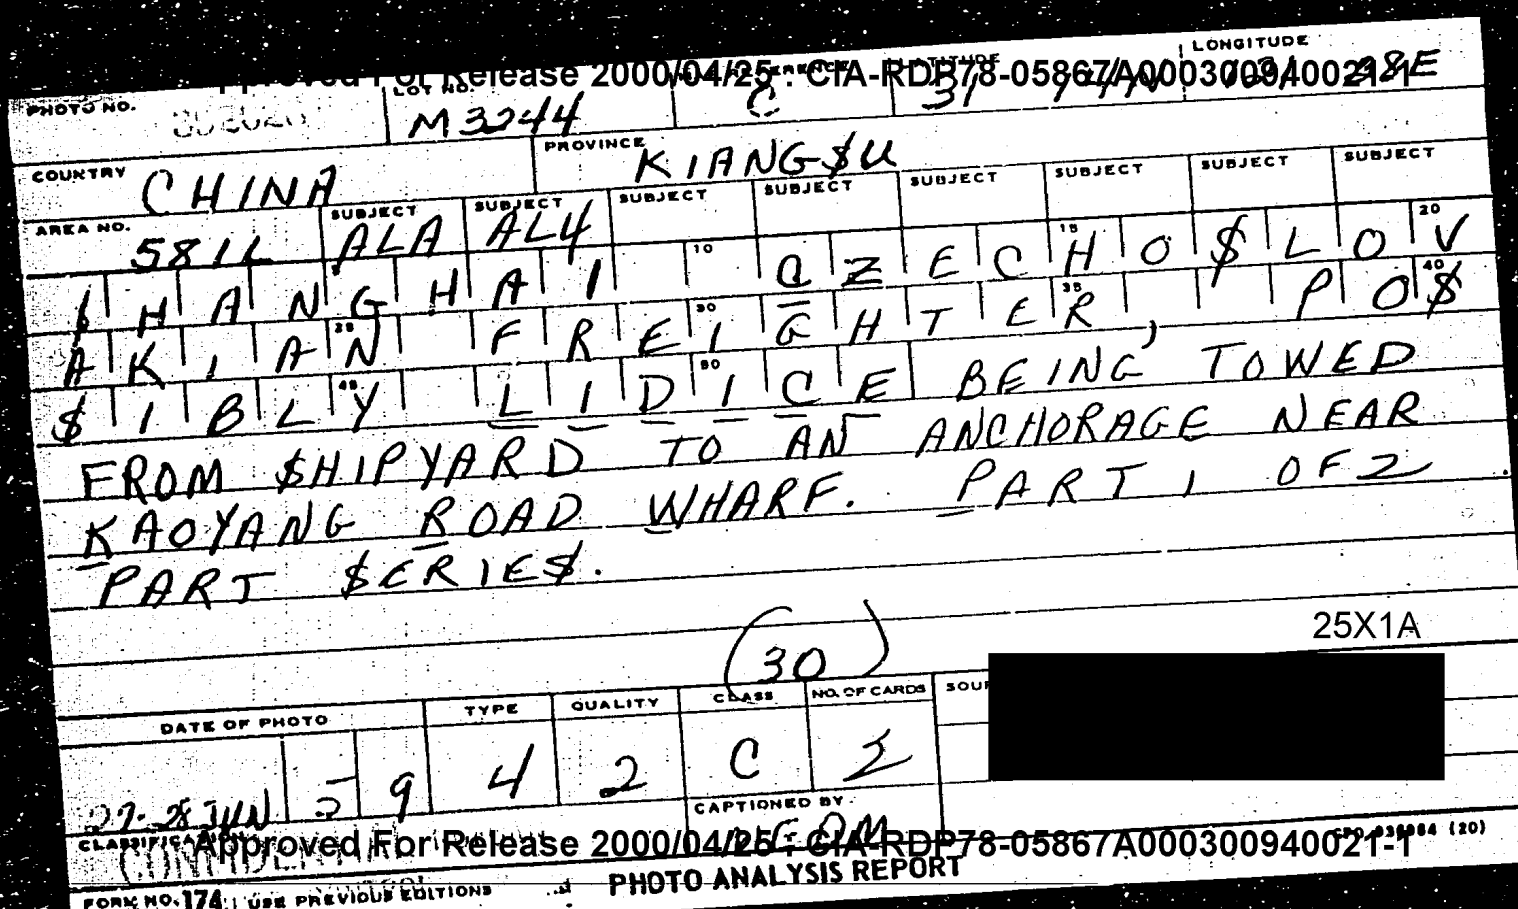 LONGITUDE
Approved For Release 2000/04/25 : CIA-RDP78-05867A000300940021-1
PHOTO NO. LOT NO. M3244 C 31 28E
COUNTRY CHINA PROVINCE KIANG$U
AREA NO. 581L SUBJECT ALA SUBJECT AL4 SUBJECT SUBJECT SUBJECT SUBJECT SUBJECT SUBJECT
$HANGHAI 10 CZECH 15 O$LOV 20
AKIAN 25 FREI 30 GHTER, 35 PO$ 40
$IBLY 45 LIDICE 50 BEING TOWED
FROM $HIPYARD TO AN ANCHORAGE NEAR
KAOYANG ROAD WHARF. PART 1 OF 2
PART $ERIE$.
25X1A
(30)
DATE OF PHOTO TYPE QUALITY CLASS NO. OF CARDS
27-28 JUN 59 4 2 C 2
CAPTIONED BY
Approved For Release 2000/04/25 : CIA-RDP78-05867A000300940021-1
FORM NO. 174 USE PREVIOUS EDITIONS PHOTO ANALYSIS REPORT (20)